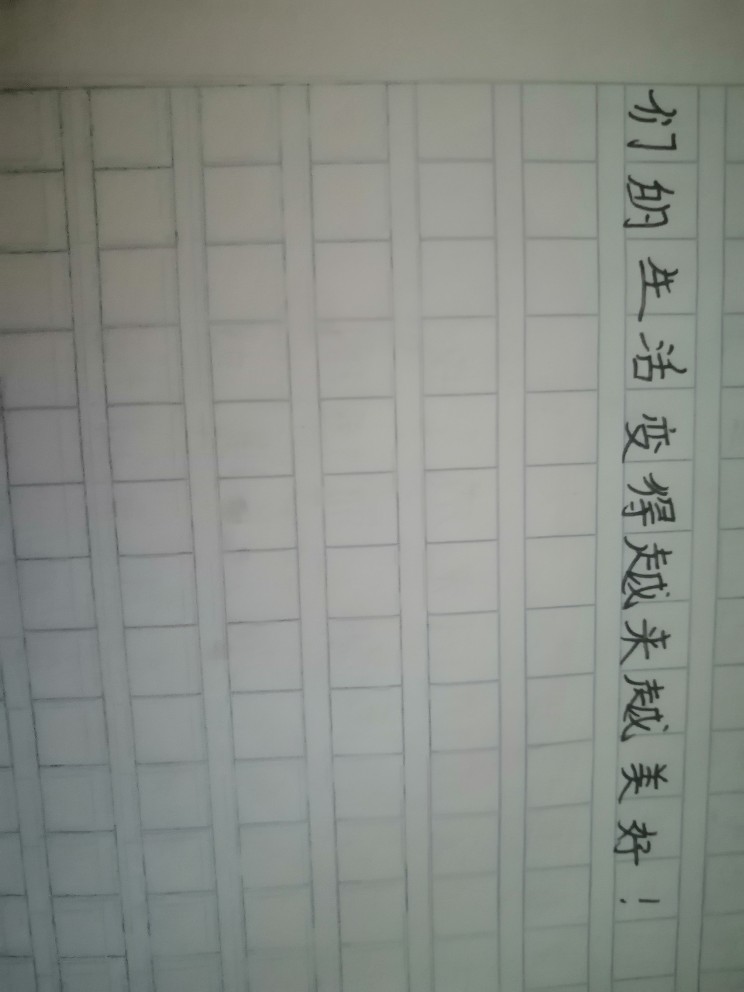 们的生活变得越来越美好！